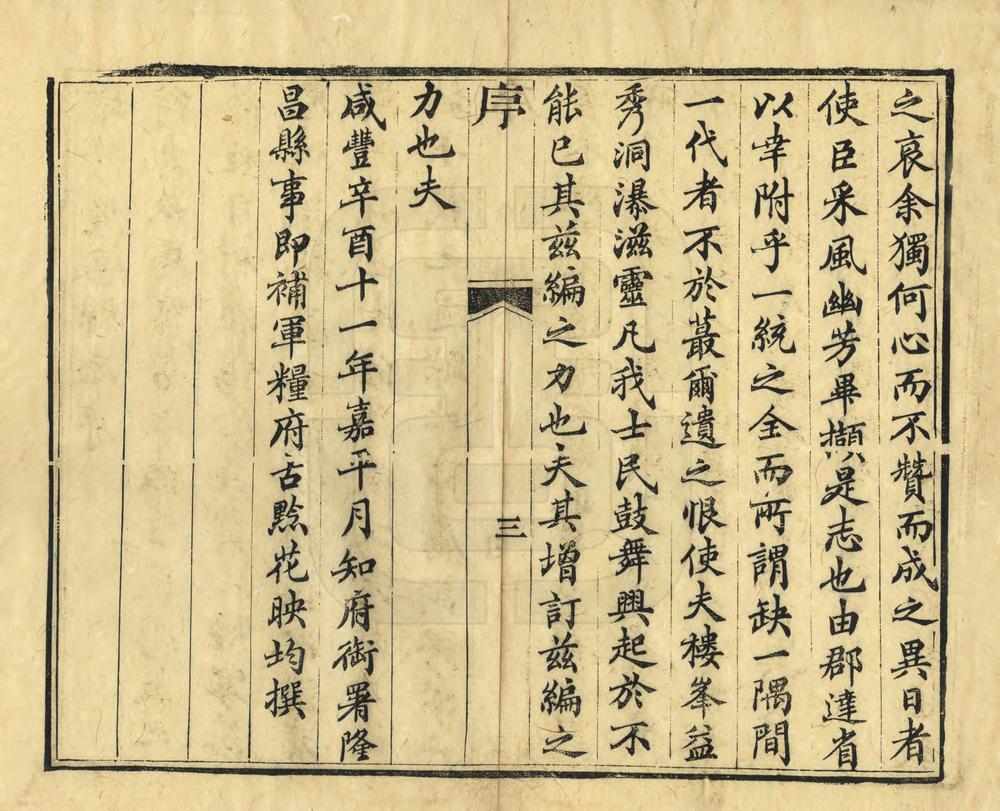 之哀余獨何心而不贊而成之異日者
使臣采風幽芳畢擷是志也由郡達省
以幸附乎一統之全而所謂缺一隅間
一代者不於蕞爾遺之恨使夫樓峯益
秀洞瀑滋靈凡我士民鼓舞興起於不
能已其兹編之力也夫其增訂兹編之
序
三
力也夫
咸豐辛酉十一年嘉平月知府銜署隆
昌縣事即補軍糧府古黔花映均撰